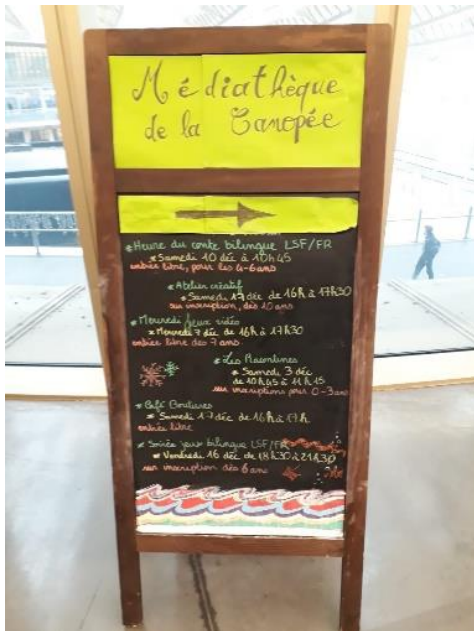 Médiathèque
de la Canopée
* Heure du conte bilingue LSF/FR
* Samedi 10 déc à 10h45
entrée libre, pour les 4-6 ans
* Atelier créatif
* Samedi 17 déc de 16h à 17h30
sur inscription, dès 10 ans
* Mercredi Jeux vidéo
* Mercredi 7 déc de 16h à 17h30
entrée libre dès 7 ans
* Les Racontines
* Samedi 3 déc
de 10h45 à 11h15
sur inscriptions pour 0-3 ans
* Café Boutures
* Samedi 17 déc de 16h à 17h
entrée libre
* Soirée jeux bilingue LSF/FR
* Vendredi 16 déc de 18h30 à 21h30
sur inscription dès 6 ans